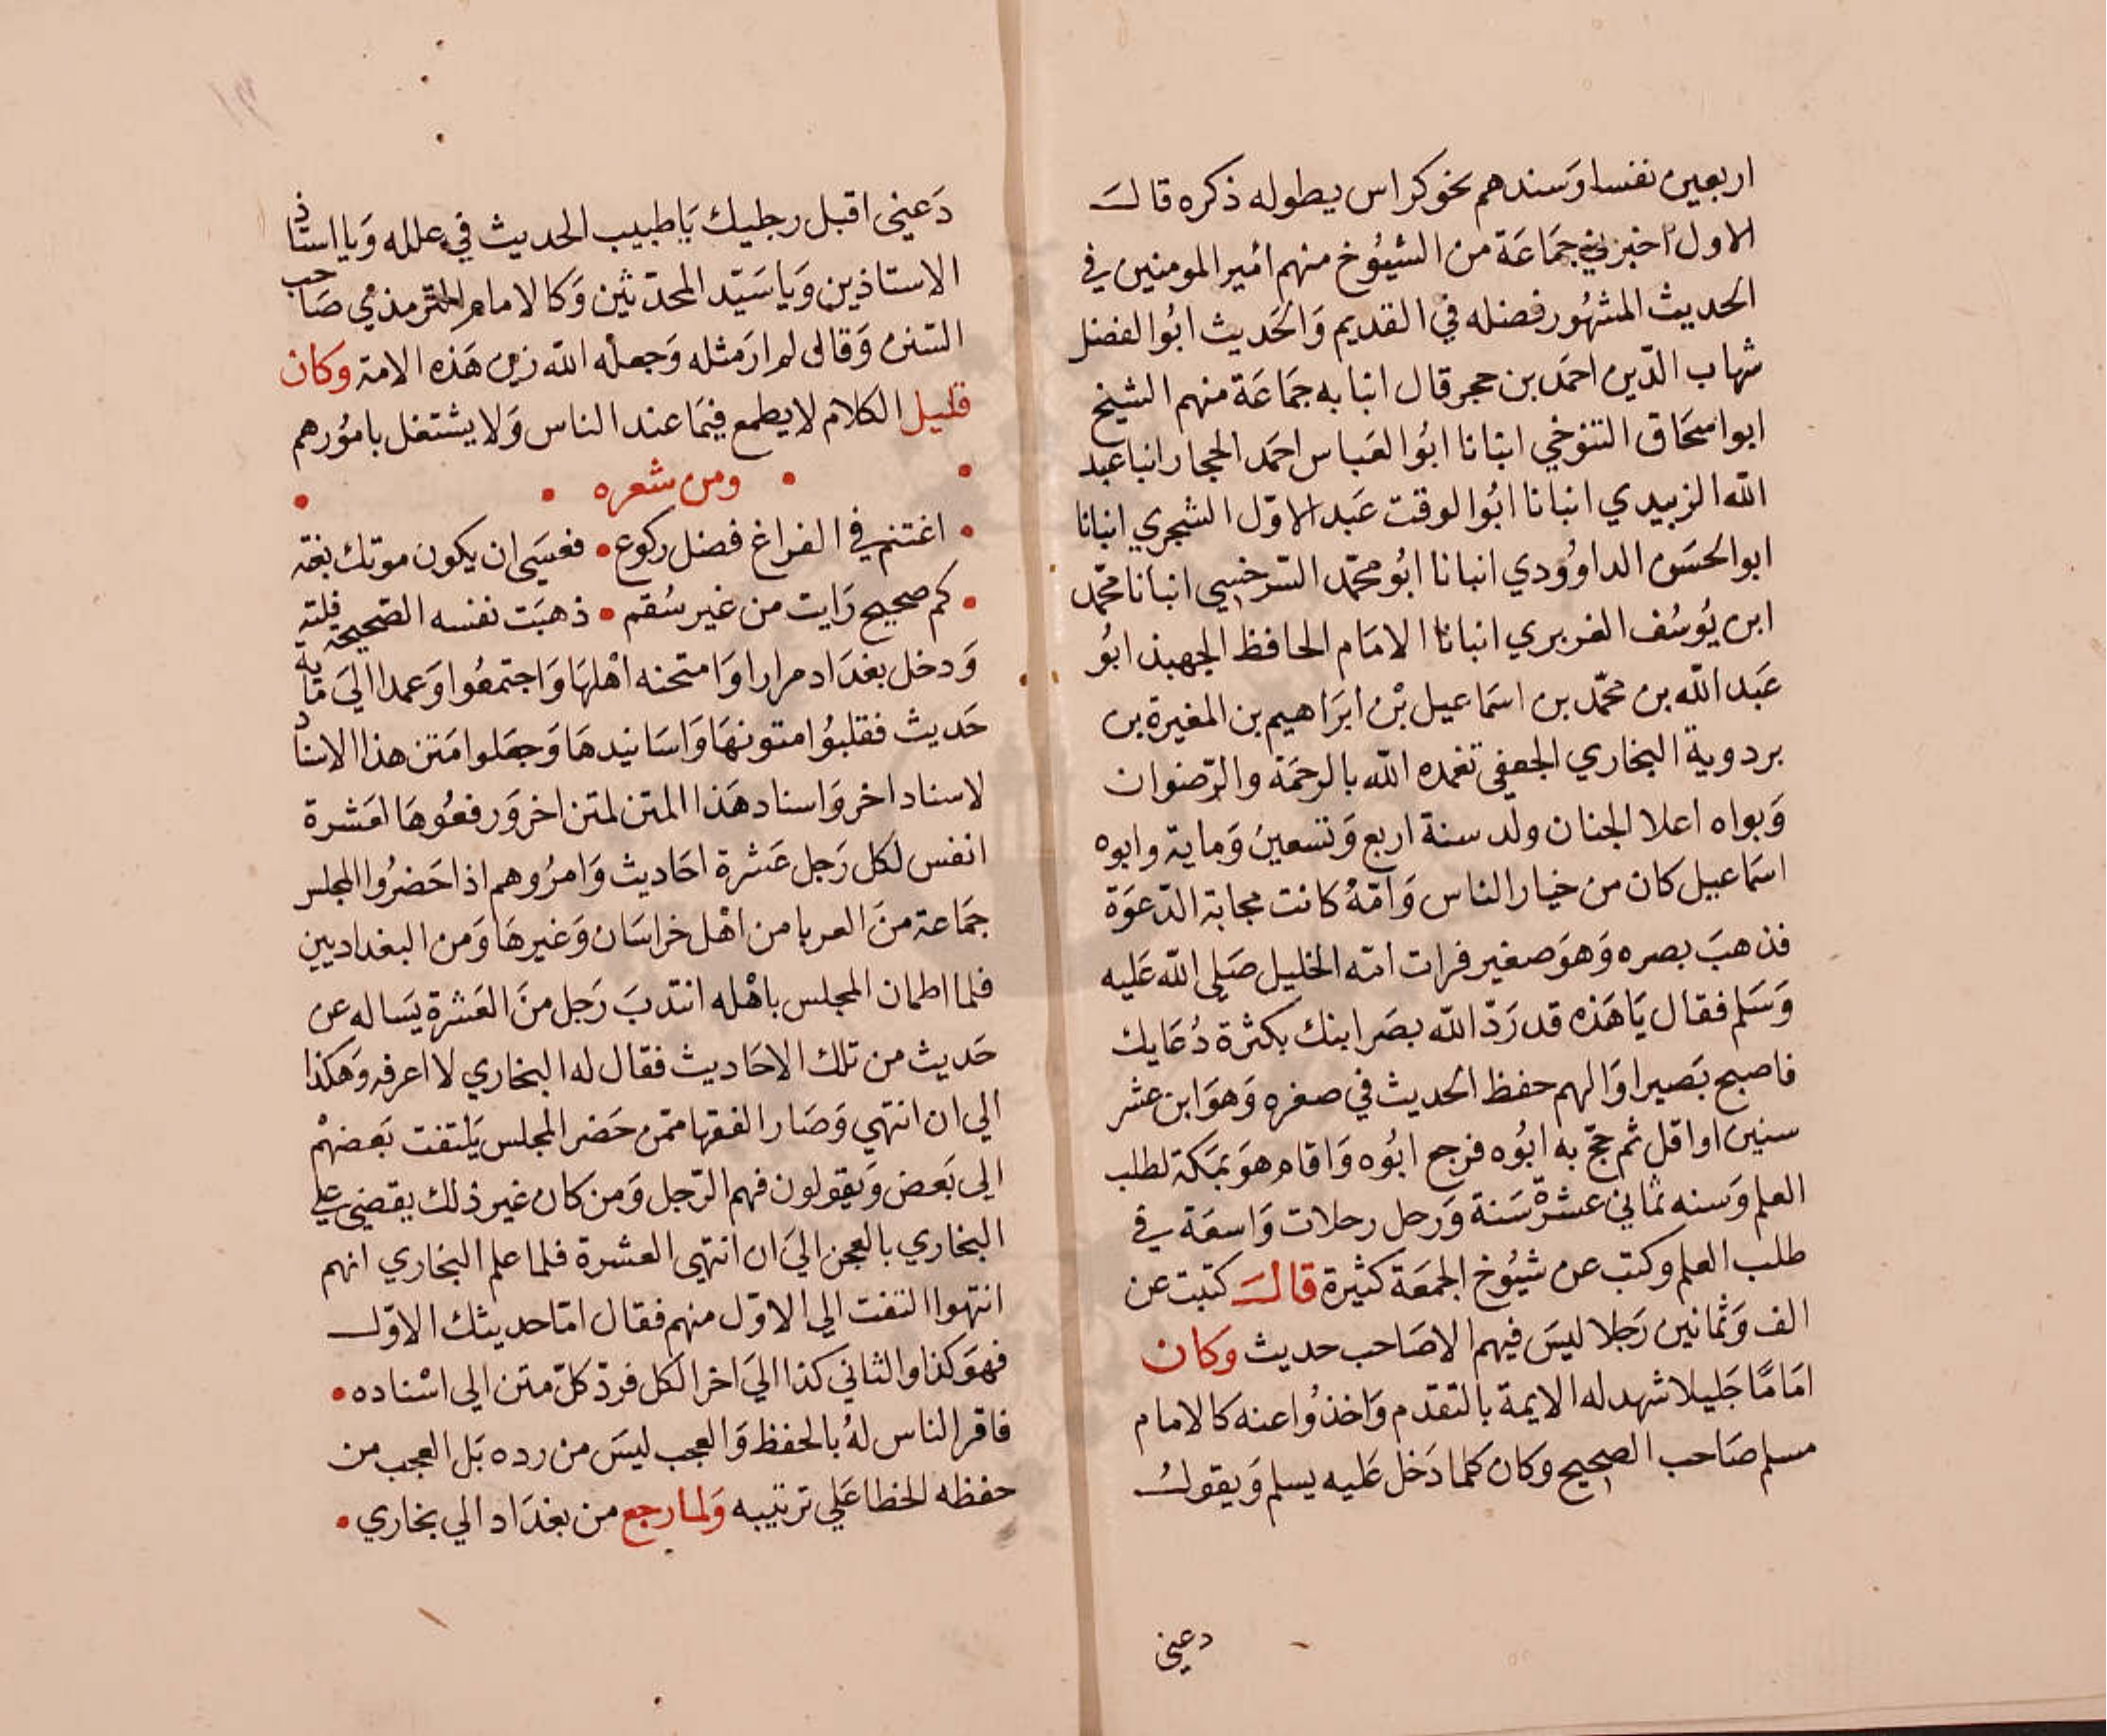 اربعين نفسا وَسندهم نحو كراس يطوله ذكره قالـَ
الاول اخبرني جمَاعَة من الشيُوخ منهم اميرالمومنين في
الحديث المشهُور فضله في القديم وَالحَديث ابُوالفضل
شهاب الدّين احمَد بن حجر قال انبا به جمَاعَة منهم الشيخ
ابواسحَاق التنوخي انبانا ابُوالعَباس احمَد الحجار انبا عبد
الله الزبيدي انبانا ابُوالوقت عَبد الاوّل الشجري انبانا
ابوالحسَن الداوُودي انبانا ابُومحمّد السّرخسي انبانا محمّد
ابن يُوسُف الفربري انبانا الامَام الحافظ الجهبذ ابوُ
عَبد الله بن محمّد بن اسمَاعيل بْن ابرَاهيم بن المغيرة بن
بردوية البخاري الجعفي تغمده الله بالرحمَة والرّضوان
وَبواه اعلا الجنان ولد سنة اربع وَتسعين وَماية وابوه
اسمَاعيل كان من خيار الناس وَامّهُ كانت مجابة الدّعوَة
فذهبَ بصره وَهوَ صغير فرات امّه الخليل صَلى الله عَليه
وَسَلم فقال يَاهَذه قد رَدّ الله بصَر ابنك بكثرة دُعَايك
فاصبح بَصيرا وَالهم حفظ الحديث في صغره وَهوَ ابن عشر
سنين اواقل ثم حجّ به ابُوه فرجع ابُوه وَاقام هوَ بمَكة لطلب
العلم وَسنه ثماني عشرة سَنة وَرحل رحلات وَاسعَة في
طلب العلم وكتب عن شيُوخ الجمعَة كثيرة قالـَ كتبت عن
الف وَثمانين رَجلا ليسَ فيهم الا صَاحب حديث وَكان
امَامًا جَليلا شهد له الايمة بالتقدم وَاخذوُا عنه كالامام
مسلم صَاحب الصحيح وكان كلما دَخل عَليه يسلم وَيقولُ
دعيني
دَعيني اقبل رجليك يَاطبيب الحديث في علله وَيا استاذ
الاستاذين وَيا سَيّد المحدّثين وَكالامام الترمذي صَاحب
السّنن وَقال لم ارَ مثله وَجعله الله زين هَذه الامة وكان
قليل الكلام لا يطمع فيمَا عند الناس وَلا يشتغل بامُورهم
ومن شعره
اغتنم في الفراغ فضل ركوع • فعسَى ان يكون موتك بغتة
كم صحيح رَايت من غير سُقم • ذهبَت نفسه الصّحيحة فلتة
وَدخل بغدَاد مرارا وَامتحنه اهْلهَا وَاجتمعُوا وَعمدا اليَ مَاية
حَديث فقلبُوا متونهَا وَاسَانيدهَا وَجعَلوا مَتن هذا الاسناد
لاسناد اخر وَاسناد هَذا المتن لمتن اخر وَرفعُوهَا لعَشرة
انفس لكل رَجل عَشرة احَاديث وَامرُوهم اذا حَضرُوا المجلس
جمَاعة منَ العربا من اهْل خراسَان وَغيرهَا وَمن البغداديين
فلما اطمان المجلس باهْله انتدبَ رَجل منَ العَشرة يَساله عن
حَديث من تلك الاحَاديث فقال له البخاري لا اعرفه وَهكذا
الي ان انتهي وَصَار الفقها ممّن حَضر المجلس يَلتفت بَعضهْم
الي بَعض وَيقولون فهم الرّجل وَمن كان غير ذلك يقضي علي
البخاري بالعجز اليَ ان انتهى العشرة فلما علم البخاري انهم
انتهوا التفت الي الاوّل منهم فقال امّا حديثك الاوّل
فهوَ كذا والثاني كذا اليَ اخر الكل فردّ كلّ متن الي اسْناده •
فاقر الناس لهُ بالحفظ وَالعجب ليسَ من رده بَل العجب من
حفظه للخطا عَلي ترتيبه وَلما رجع من بغدَاد الي بخاري •